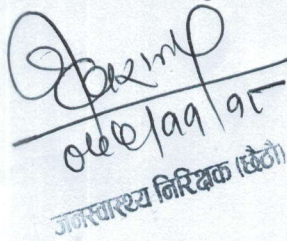 ०७७/११/१८
जनस्वास्थ्य निरिक्षक (छैठौं)